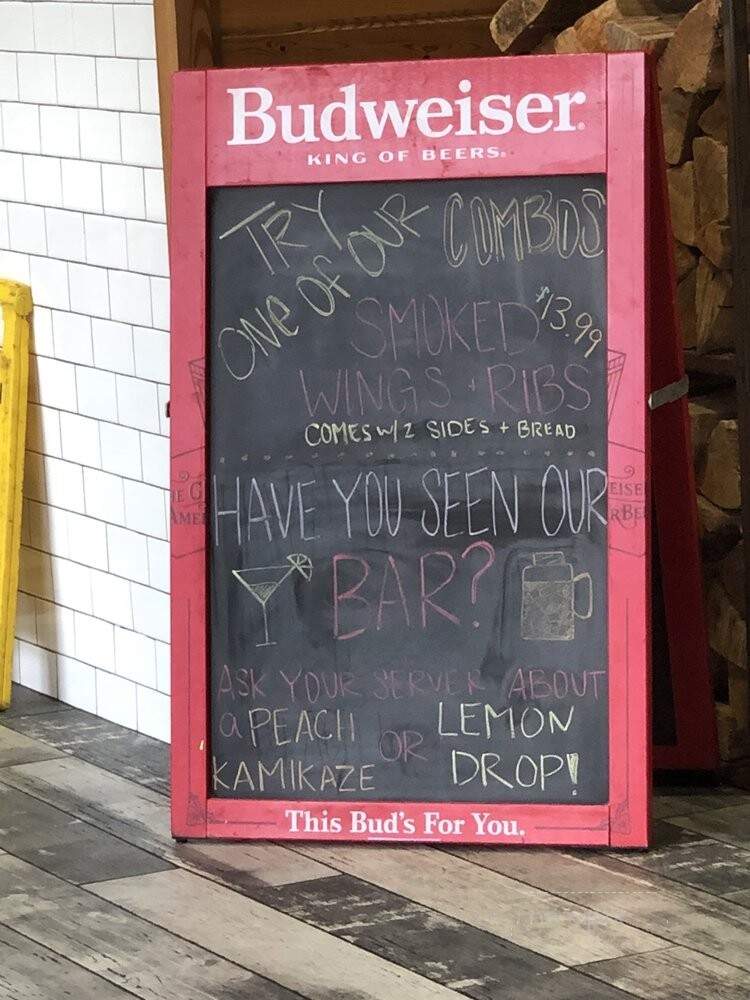 Budweiser
KING OF BEERS.
TRY
ONE OF OUR COMBOS
SMOKED $13.99
WINGS + RIBS
COMES W/2 SIDES + BREAD
HAVE YOU SEEN OUR
BAR?
ASK YOUR SERVER ABOUT
a PEACH KAMIKAZE
OR
LEMON DROP!
This Bud's For You.